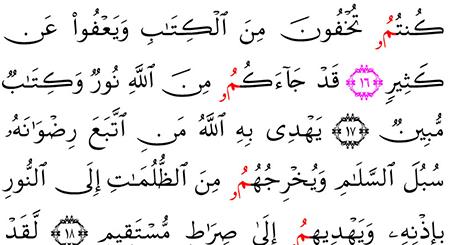 كُنتُمُۥ تُخْفُونَ مِنَ ٱلْكِتَٰبِ وَيَعْفُوا۟ عَن
كَثِيرٍ ١٦ قَدْ جَآءَكُمُۥ مِنَ ٱللَّهِ نُورٌ وَكِتَٰبٌ
مُّبِينٌ ١٧ يَهْدِى بِهِ ٱللَّهُ مَنِ ٱتَّبَعَ رِضْوَٰنَهُۥ
سُبُلَ ٱلسَّلَٰمِ وَيُخْرِجُهُمُۥ مِنَ ٱلظُّلُمَٰتِ إِلَى ٱلنُّورِ
بِإِذْنِهِۦ وَيَهْدِيهِمُۥ إِلَىٰ صِرَٰطٍ مُّسْتَقِيمٍ ١٨ لَّقَدْ